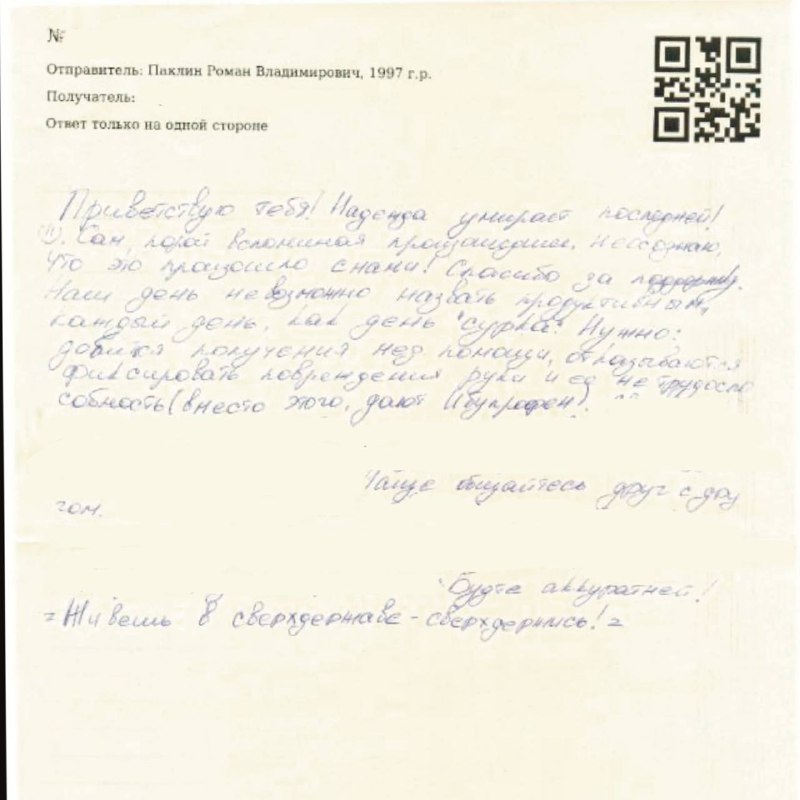 №
Отправитель: Паклин Роман Владимирович, 1997 г.р.
Получатель:
Ответ только на одной стороне
Приветствую тебя! Надежда умирает последней!
Сам, порой вспоминая произошедшее, неосознаю,
что это произошло снами! Спасибо за поддержку.
Наш день невозможно назвать продуктивным,
каждый день, как день "сурка". Нужно:
добится получения мед помощи, отказываются
фиксировать повреждения руки и ее нетрудоспо
собность (вместо этого, дают Ибупрофен).
Чаще общайтесь друг с дру
гом.
Будте аккуратней!
=Живешь в сверхдержаве - сверхдержись!=